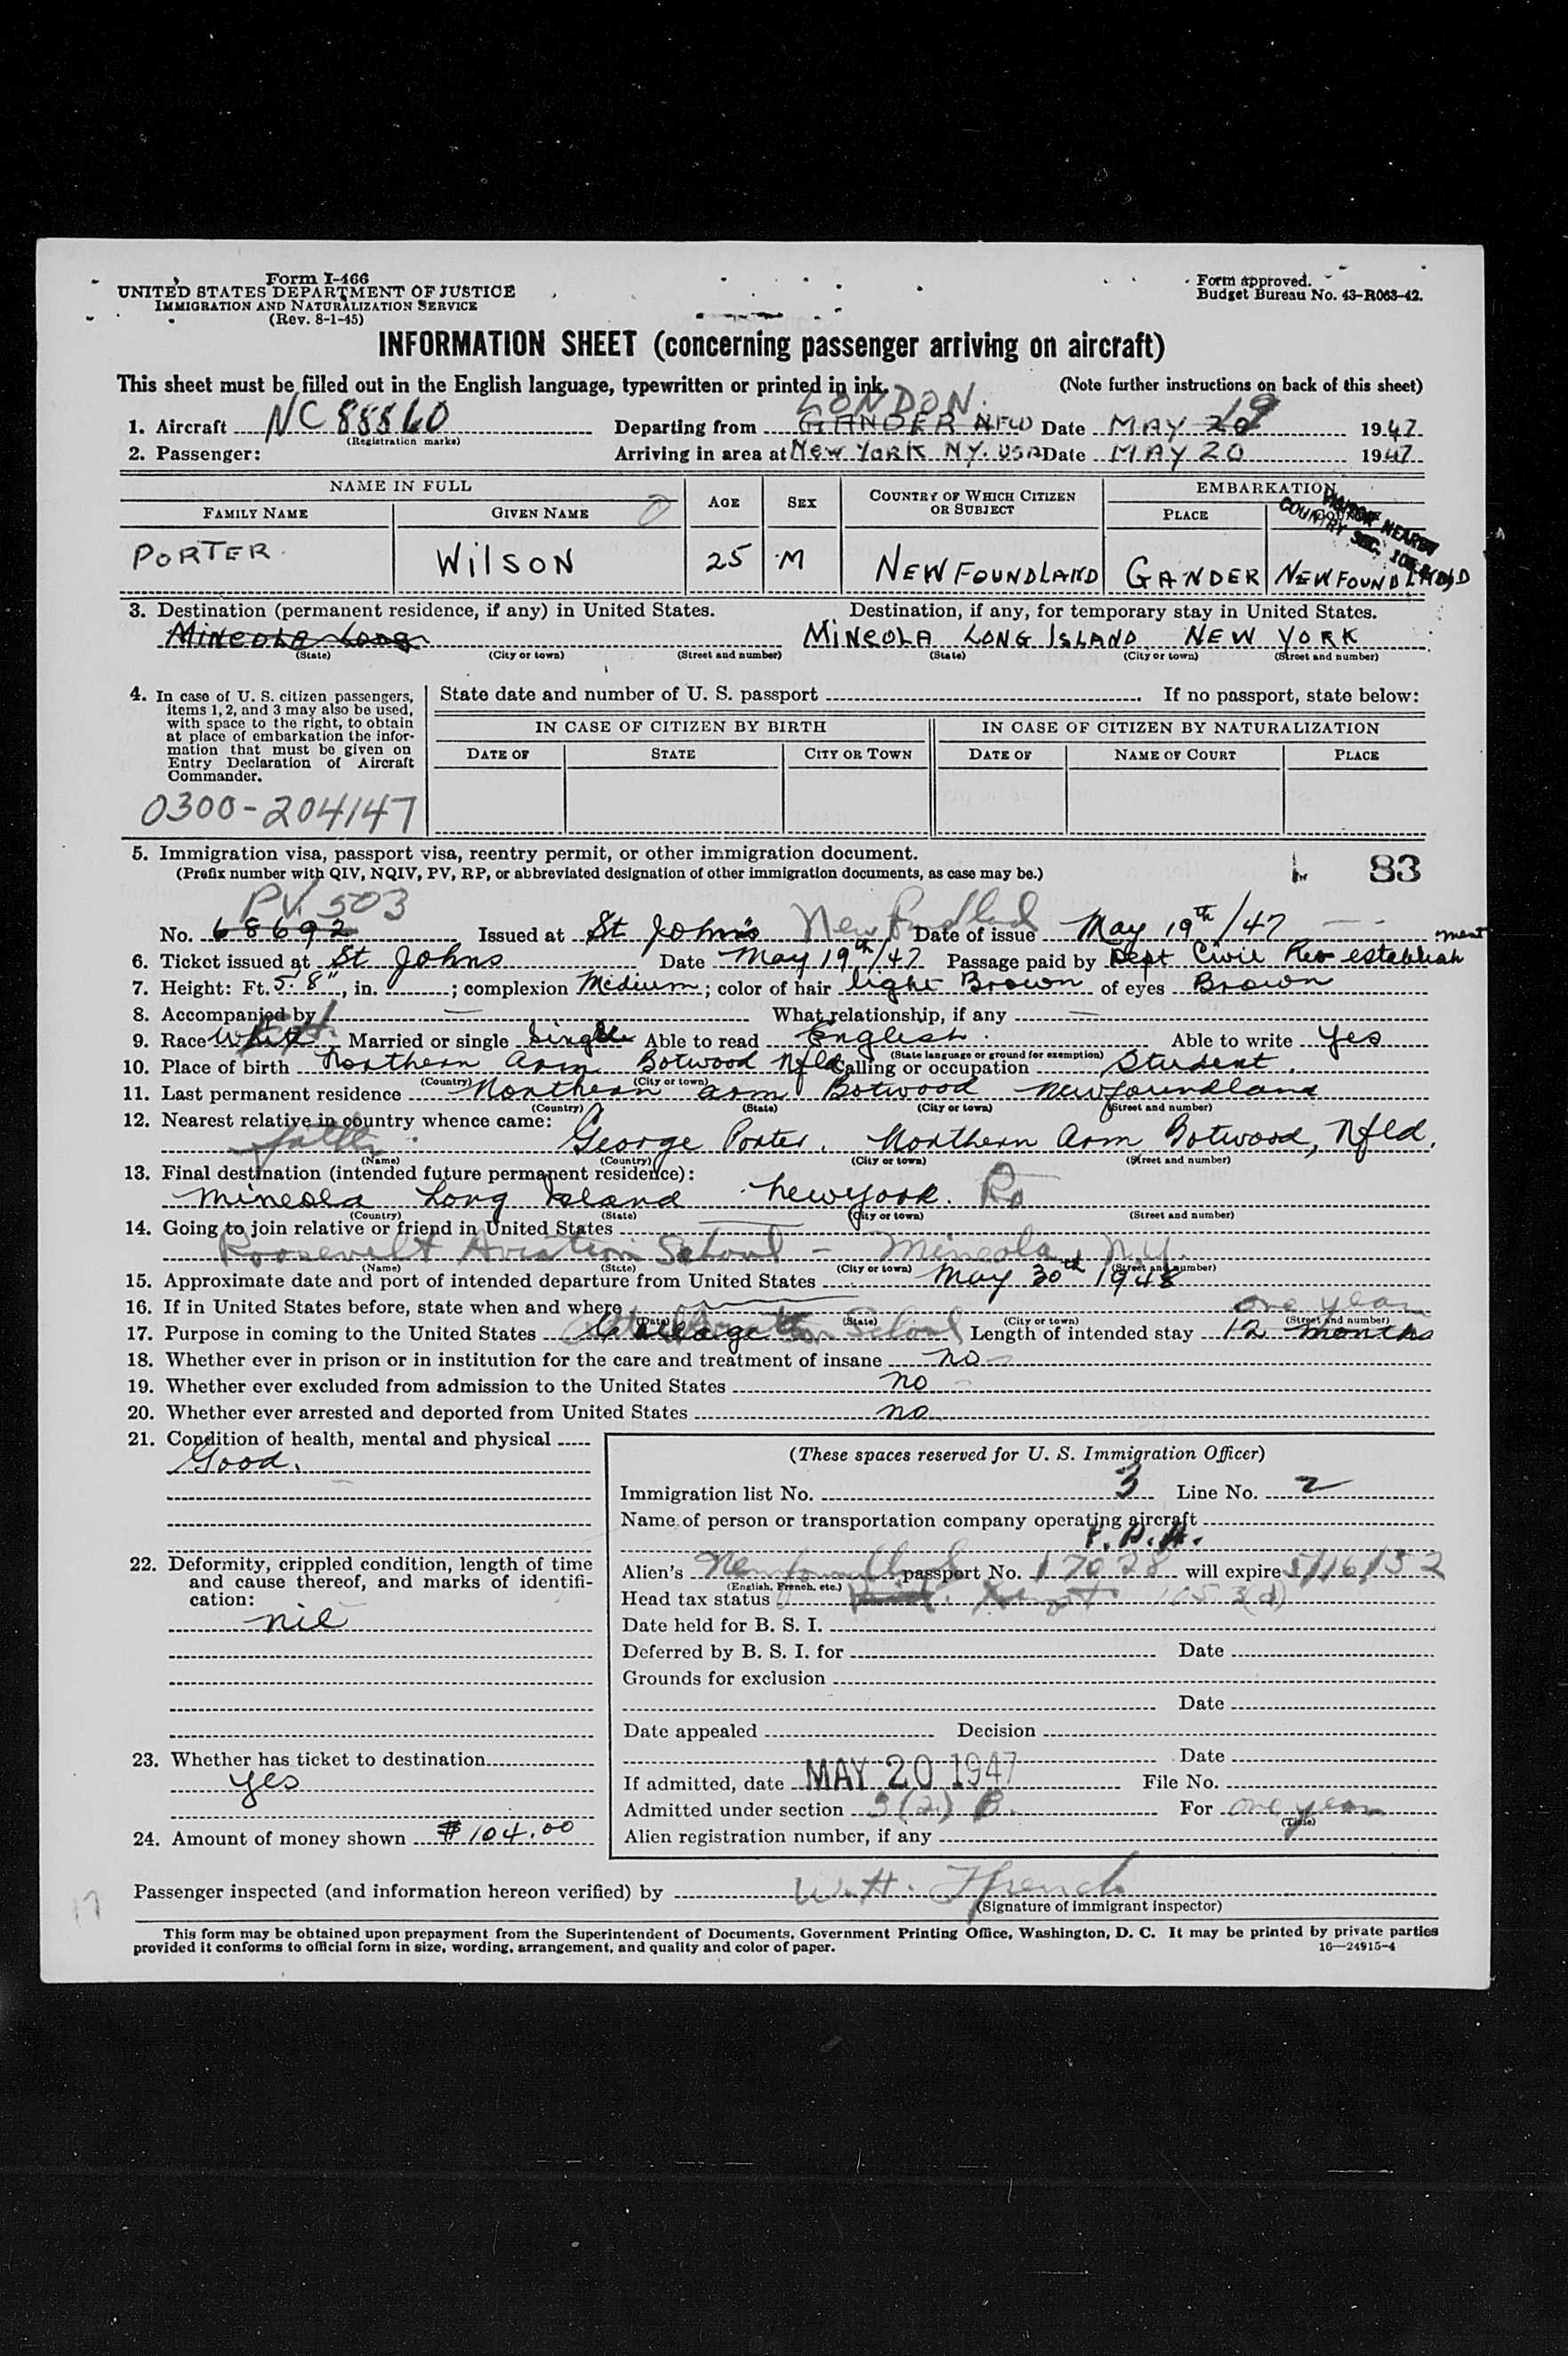 Form I-466
UNITED STATES DEPARTMENT OF JUSTICE
IMMIGRATION AND NATURALIZATION SERVICE
(Rev. 8-1-45)
Form approved.
Budget Bureau No. 43-R063-42.
INFORMATION SHEET (concerning passenger arriving on aircraft)
This sheet must be filled out in the English language, typewritten or printed in ink. (Note further instructions on back of this sheet)
LONDON. 19
1. Aircraft NC 88860 Departing from GANDER NFLD Date MAY 20 1947
(Registration marks)
2. Passenger: Arriving in area at New York N.Y. USA Date MAY 20 1947
NAME IN FULL AGE SEX COUNTRY OF WHICH CITIZEN OR SUBJECT EMBARKATION
FAMILY NAME GIVEN NAME PLACE
COUNTRY SEC.
PORTER WilSON 25 M NEWFOUNDLAND GANDER NEWFOUNDLAND
3. Destination (permanent residence, if any) in United States. Destination, if any, for temporary stay in United States.
Mineola Long MiNEOLA LONG ISLAND NEW YORK
(State) (City or town) (Street and number) (State) (City or town) (Street and number)
4. In case of U. S. citizen passengers, items 1, 2, and 3 may also be used, with space to the right, to obtain at place of embarkation the information that must be given on Entry Declaration of Aircraft Commander.
State date and number of U. S. passport If no passport, state below:
IN CASE OF CITIZEN BY BIRTH IN CASE OF CITIZEN BY NATURALIZATION
DATE OF STATE CITY OR TOWN DATE OF NAME OF COURT PLACE
0300-204147
5. Immigration visa, passport visa, reentry permit, or other immigration document.
(Prefix number with QIV, NQIV, PV, RP, or abbreviated designation of other immigration documents, as case may be.)
83
PV. 503
No. 68692 Issued at St John's Date of issue May 19th/47
6. Ticket issued at St Johns Date May 19th/47 Passage paid by Dept Civil Re establishment
7. Height: Ft. 5' 8", in. ; complexion Medium; color of hair light Brown of eyes Brown
8. Accompanied by — What relationship, if any —
9. Race Married or single Single Able to read English Able to write Yes
(State language or ground for exemption)
10. Place of birth Northern Arm Botwood Nfld Calling or occupation Student.
(Country) (City or town)
11. Last permanent residence Northern arm Botwood Newfoundland
(Country) (State) (City or town) (Street and number)
12. Nearest relative in country whence came:
father George Porter, Northern Arm Botwood, Nfld.
(Name) (Country) (City or town) (Street and number)
13. Final destination (intended future permanent residence):
Mineola Long Island New York.
(Country) (State) (City or town) (Street and number)
14. Going to join relative or friend in United States
Roosevelt Aviation School - Mineola, N.Y.
(Name) (State) (City or town) (Street and number)
15. Approximate date and port of intended departure from United States May 30th 1948
16. If in United States before, state when and where
(Date) (State) (City or town) (Street and number)
one year
17. Purpose in coming to the United States School Length of intended stay 12 months
18. Whether ever in prison or in institution for the care and treatment of insane no
19. Whether ever excluded from admission to the United States no
20. Whether ever arrested and deported from United States no
21. Condition of health, mental and physical
Good.
22. Deformity, crippled condition, length of time and cause thereof, and marks of identification:
nil
23. Whether has ticket to destination
yes
24. Amount of money shown $104.00
(These spaces reserved for U. S. Immigration Officer)
Immigration list No. 3 Line No. 2
Name of person or transportation company operating aircraft
Alien's passport No. 17028 will expire 5/16/52
(English, French, etc.)
Head tax status 105.3(d)
Date held for B. S. I.
Deferred by B. S. I. for Date
Grounds for exclusion
Date
Date appealed Decision
Date
If admitted, date MAY 20 1947 File No.
Admitted under section 3(2) B. For one year
(Time)
Alien registration number, if any
Passenger inspected (and information hereon verified) by W. H. Ffrench
(Signature of immigrant inspector)
17
This form may be obtained upon prepayment from the Superintendent of Documents, Government Printing Office, Washington, D. C. It may be printed by private parties
provided it conforms to official form in size, wording, arrangement, and quality and color of paper. 16—24915-4